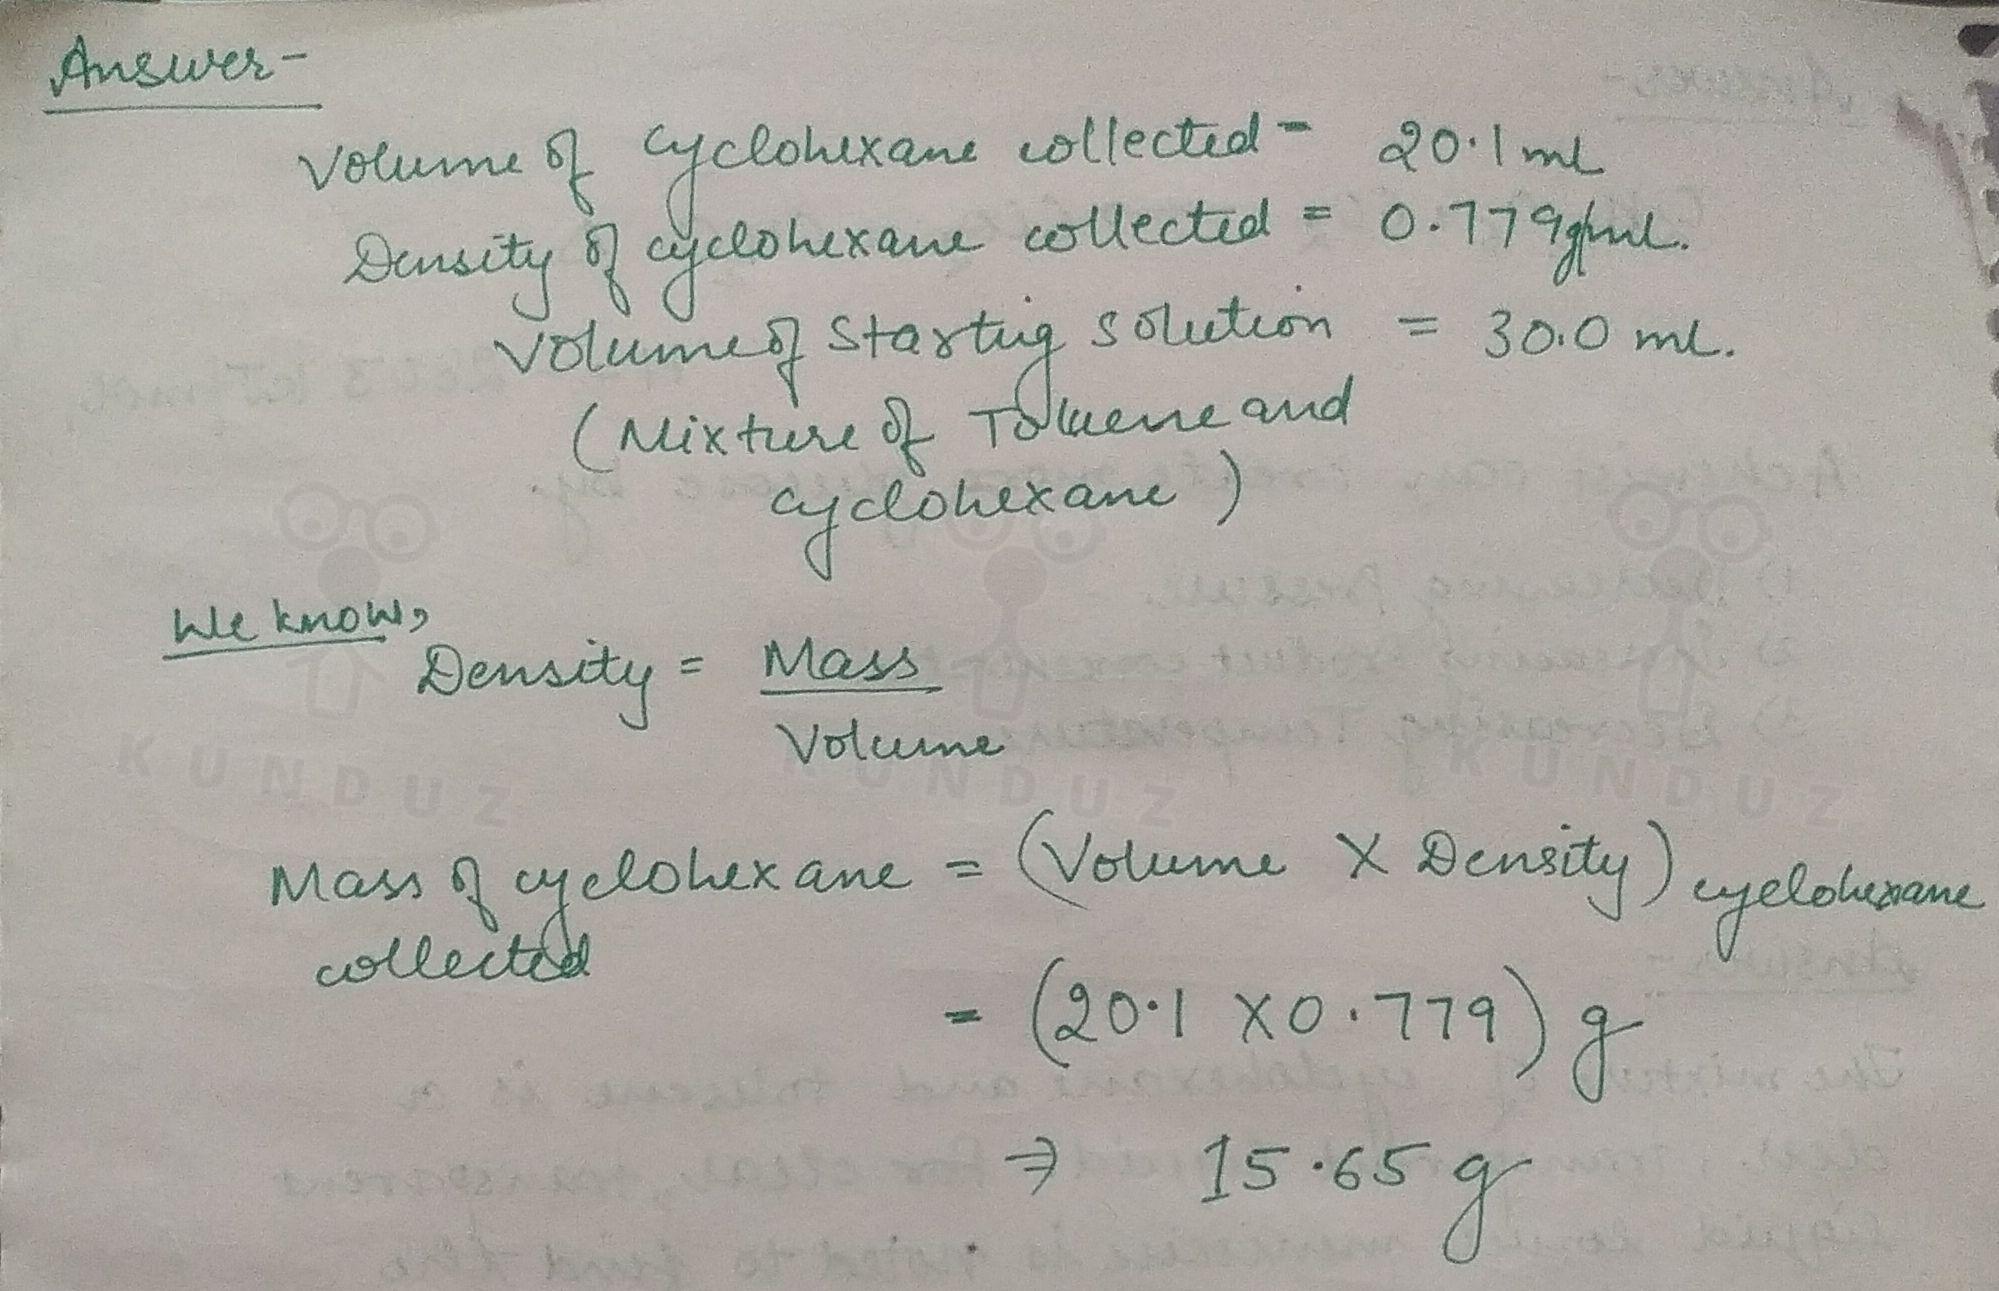 Answer-
Volume of cyclohexane collected - 20.1 ml
Density of cyclohexane collected = 0.779 g/ml.
Volume of Startig solution = 30.0 ml.
(Mixture of Toluene and
cyclohexane)
We know,
Density = Mass
Volume
Mass of cyclohexane = (Volume X Density) cyclohexane
collected
= (20.1 X 0.779) g
⇒ 15.65 g
KUNDUZ KUNDUZ KUNDUZ